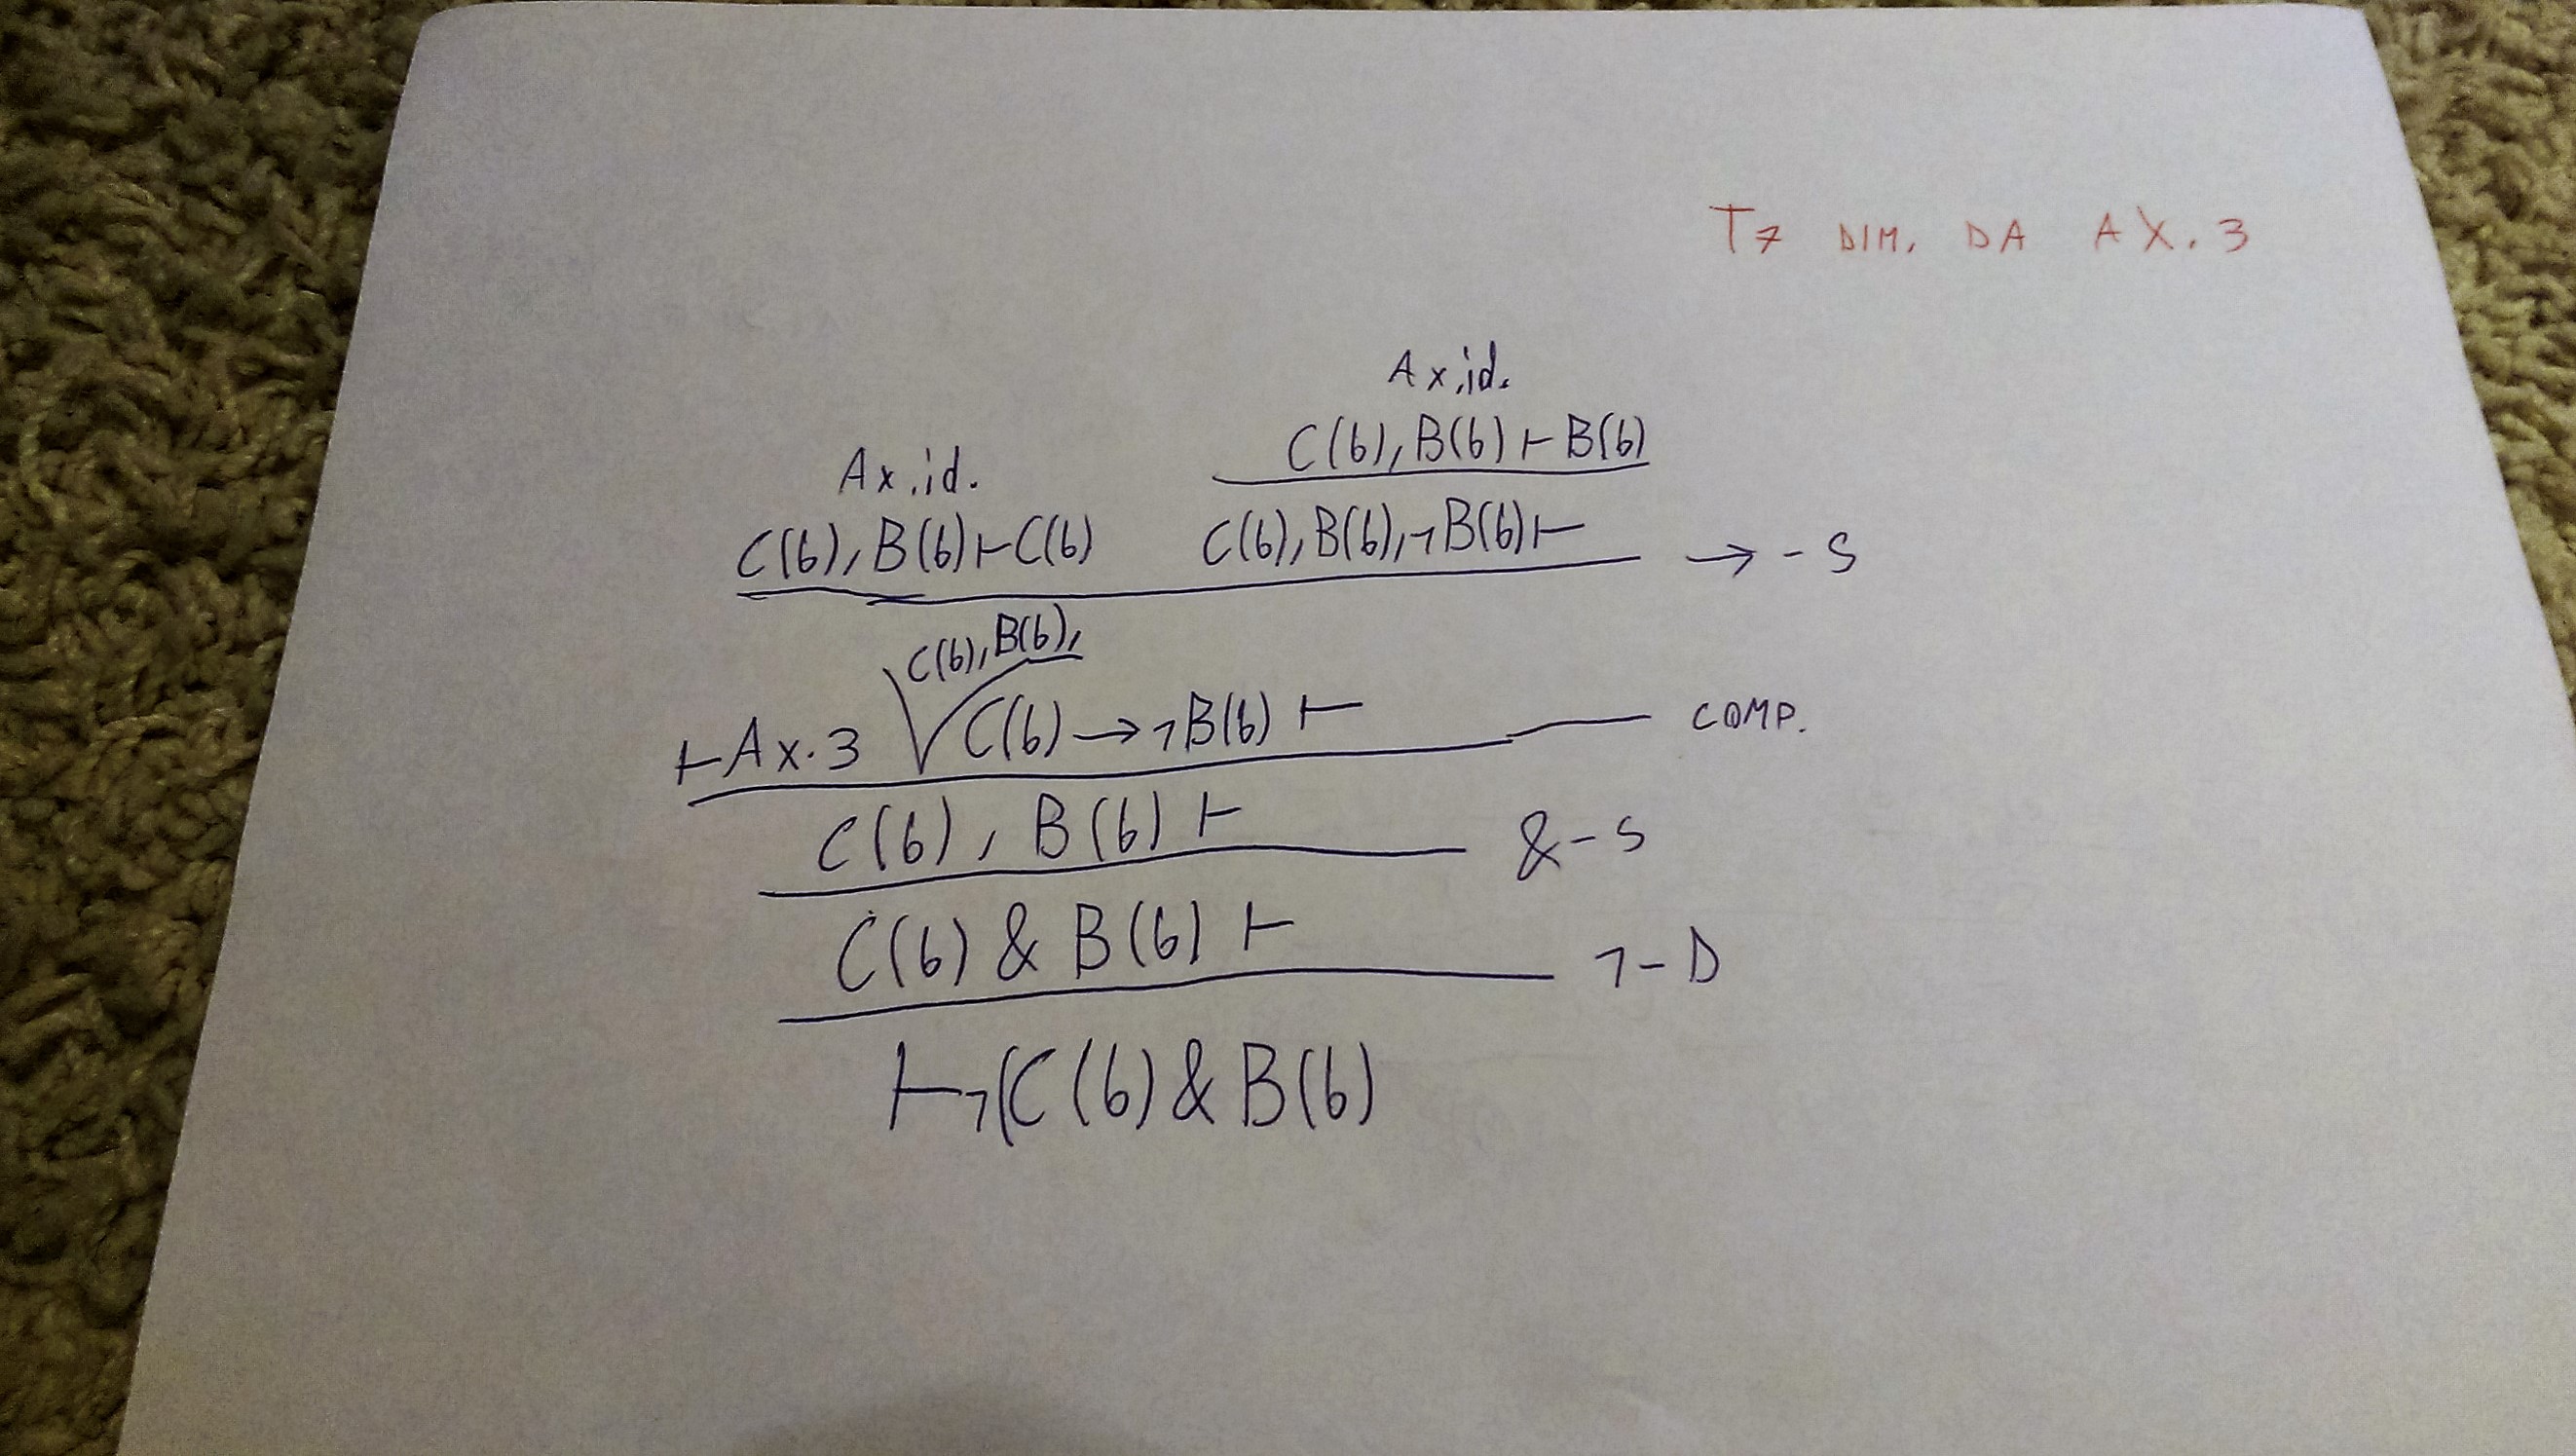 T7 DIM. DA AX.3
Ax.id.
C(b),B(b)⊢B(b)
Ax.id.
C(b),B(b)⊢C(b) C(b),B(b),¬B(b)⊢ →-S
C(b),B(b),
⊢Ax.3 C(b)→¬B(b)⊢ COMP.
C(b), B(b)⊢ &-S
C(b)&B(b)⊢ ¬-D
⊢¬(C(b)&B(b)